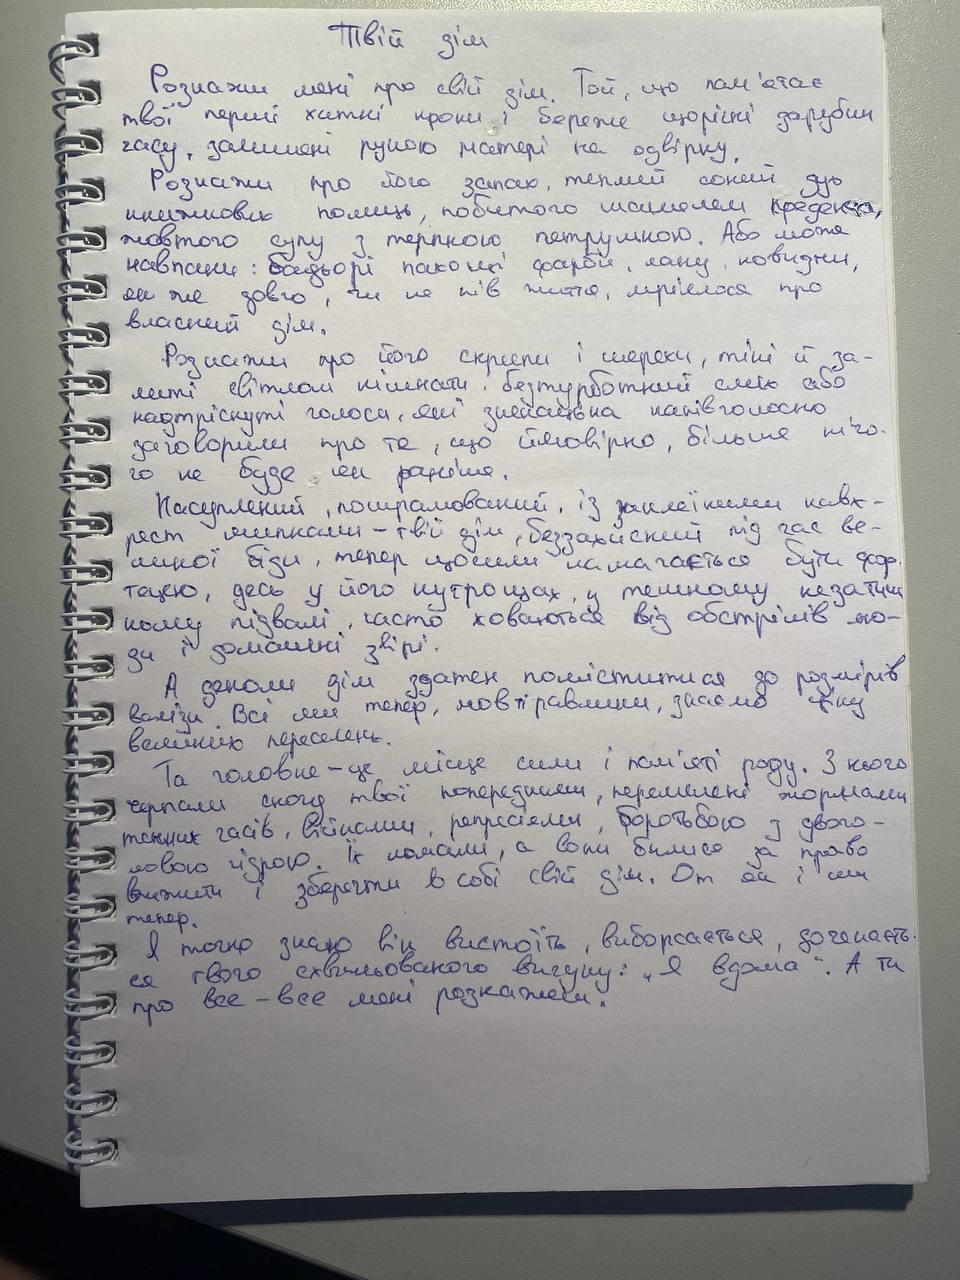 Твій дім
Розкажи мені про свій дім. Той, що пам'ятає
твої перші хаткі кроки і береже щорічні зарубки
часу, залишені рукою матері на одвірку.
Розкажи про його запах, теплий сонний дух
книжкових полиць, побитого шашелем креденса,
жовтого супу з терпкою петрушкою. Або може
навпаки: бадьорі пахощі фарби, лаку, новизни,
як же довго, чи не пів життя, мріялося про
власний дім.
Розкажи про його скрипи і шерехи, тіні й за-
литі світлом кімнати, безтурботний сміх або
надтріснуті голоси, які зненацька напівголосно
заговорили про те, що ймовірно, більше нічо-
го не буде як раніше.
Насуплений, пошрамований, із заклеїними навх-
рест шибками – твій дім, беззахисний під час ве-
ликої біди, тепер щосили намагається бути фор-
тецею, десь у його нутрощах, у темному незатиш
ному підвалі, часто ховаються від обстрілів лю-
ди і домашні звірі.
А деколи дім здатен поміститися до розмірів
валізи. Всі ми тепер, мов ті равлики, знаємо ціну
великих переселень.
Та головне – це місце сили і пам'яті роду. З нього
черпали снагу твої попередники, перемелені жорнами
тяжких часів, війнами, репресіями, боротьбою з двого-
ловою гідрою. Їх ламали, а вони билися за право
вижити і зберегти в собі свій дім. От як і ми
тепер.
Я точно знаю він вистоїть, виборсається, дочекаєть-
ся твого схвильованого вигуку: „Я вдома". А ти
про все – все мені розкажеш.